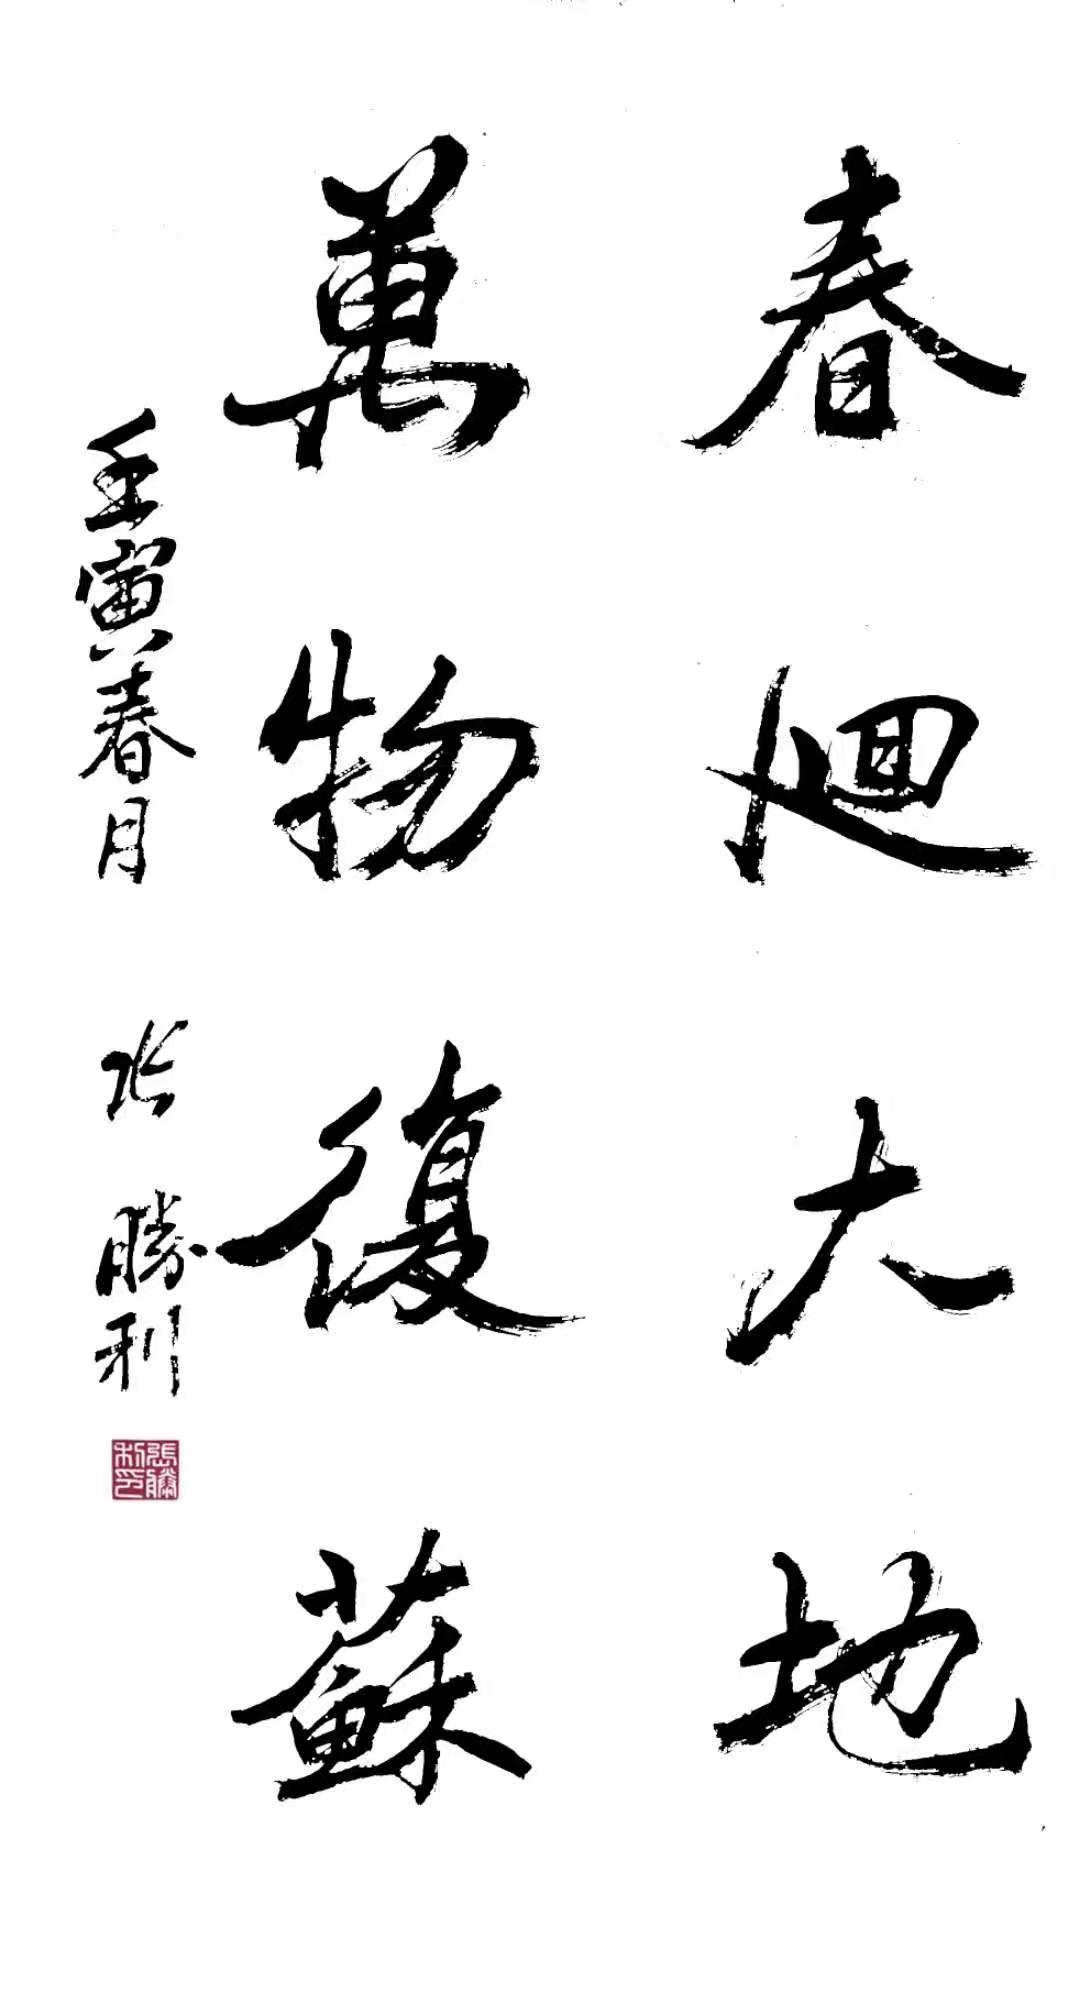 春迴大地
萬物復蘇
壬寅春月 张勝利
張勝利印